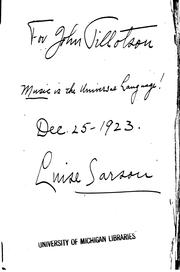 For John Tillotson
Music is the Universal Language!
Dec. 25 - 1923.
Luise Sarson
UNIVERSITY OF MICHIGAN LIBRARIES